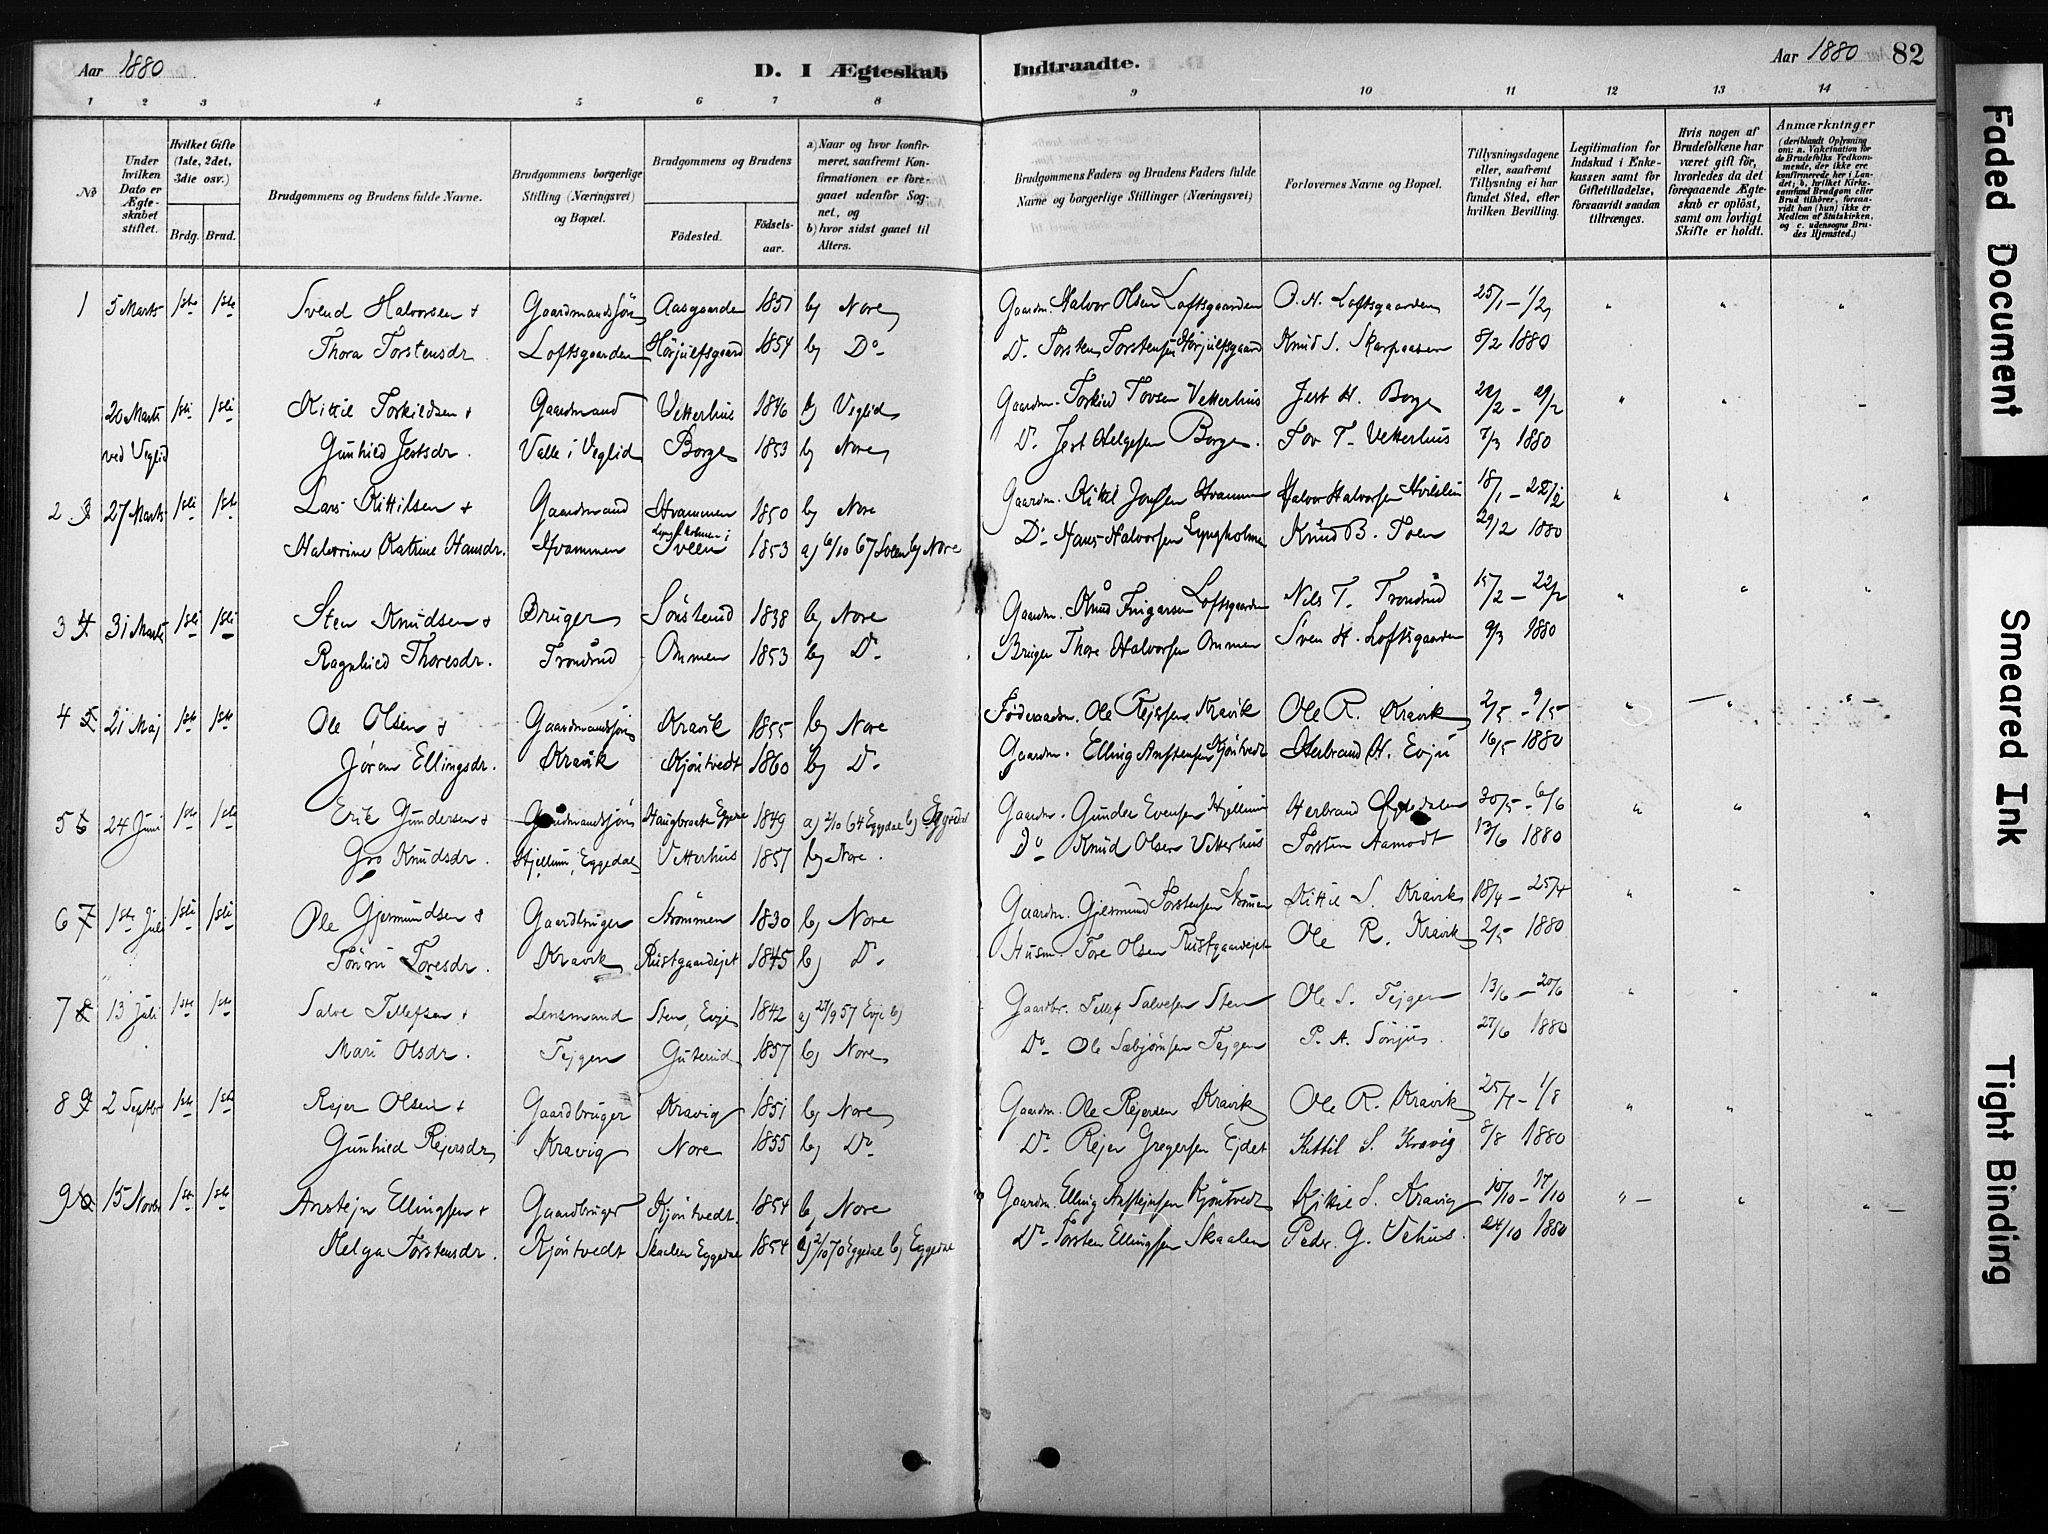 Aar 1880 D. I Ægteskab Indtraadte. Aar 1880 82
1 2 3 4 5 6 7 8 9 10 11 12 13 14
No
Under hvilken Dato er Ægteskabet stiftet.
Hvilket Gifte (1ste, 2det, 3die osv.)
Brdg. Brud.
Brudgommens og Brudens fulde Navne.
Brudgommens borgerlige Stilling (Næringsvei) og Bopæl.
Brudgommens og Brudens
Födested. Födselsaar.
a) Naar og hvor konfirmeret, saafremt Konfirmationen er foregaaet udenfor Sognet, og
b) hvor sidst gaaet til Alters.
Brudgommens Faders og Brudens Faders fulde Navne og borgerlige Stillinger (Næringsvei)
Forlovernes Navne og Bopæl.
Tillysningsdagene eller, saafremt Tillysning ei har fundet Sted, efter hvilken Bevilling.
Legitimation for Indskud i Enkekassen samt for Giftetilladelse, forsaavidt saadan tiltrænges.
Hvis nogen af Brudefolkene har været gift för, hvorledes da det foregaaende Ægteskab er oplöst, samt om lovligt Skifte er holdt.
Anmærkninger (deriblandt Oplysning om: a. Vakcination for de Brudefolks Vedkommende, der ikke ere konfirmerede her i Landet; b. hvilket Kirkesamfund Brudgom eller Brud tilhörer, forsaavidt han (hun) ikke er Medlem af Statskirken, og c. udensogns Brudes Hjemsted.)
1 5 Marts 1ste 1ste Svend Halvorsen + Gaardmandssön Aasgaarden 1851 b) Nore Gaardm. Halvor Olsen Loftsgaarden O. H. Loftsgaarden 25/1 – 1/2 " " "
Thora Torstensdr. Loftsgaarden Hörjulfsgaard 1854 b) Do Do Torsten Torstensen Hörjulfsgaard Knud S. Skarpaasen 8/2 1880
20 Marts 1ste 1ste Kittil Torkildsen + Gaardmand Vetterhus 1846 b) Veglid Gaardm. Torkied Tovsen Vetterhus Jest H. Borge 22/2 – 29/2 " " –
ved Veglid Gunhild Jestsdr. Valle i Veglid Borge 1853 b) Nore Do Jest Helgesen Borge. Tov T. Vetterhus 7/3 1880
2 3 27 Marts 1ste 1ste Lars Kittilsen + Gaardmand Hvammen 1850 b) Nore Gaardm. Kittil Jonsen Hvammen Halvor Halvorsen 18/1 – 22/2 " " "
Halvorine Katrine Hansdr. Hvammen Lyngholmen i Sveen 1853 a) 6/10 67 Sveen b) Nore Do Hans Halvorsen Lyngholmen Knud B. Toen 29/2 1880
3 4 31 Marts 1ste 1ste Sten Knudsen + Bruger Sönsterud 1838 b) Nore Gaardm. Knud Fingarsen Loftsgaarden Nels T. Trondrud 15/2 – 22/2 " " "
Ragnhied Thoresdr. Trondrud Ommen 1853 b) Do Bruger Thore Halvorsen Ommen Sven H. Loftsgaarden 9/3 1880
4 5 21 Maj 1ste 1ste Ole Olsen + Gaardmandssön Kravik 1855 b) Nore Föderaadm. Ole Rejersen Kravik Ole R. Kravik 2/5 – 9/5 " – " " –
Jöran Ellingsdr. Kravik Kjöntvedt 1860 b) Do Gaardm. Elling Anstensen Kjöntvedt Herbrand H. Evju 16/5 1880
5 6 24 Juni 1ste 1ste Erik Gundersen + Gaardmandssön Haugbraate Eggedal 1849 a) 2/10 64 Eggedal b) Eggedal Gaardm. Gunder Evensen Hjellum Herbrand 30/5 – 6/6 " " "
Gro Knudsdr. Hjellum, Eggedal Vetterhus 1857 b) Nore. Do Knud Olsen Vetterhus Torsten Aamodt 13/6 1880
6 7 1ste Juli 1ste 1ste Ole Gjermundsen + Gaardbruger Strömmen 1830 b) Nore Gaardm. Gjermund Torstensen Strömmen Kittil S. Kravik 18/4 – 25/4 " " "
Töruu Toresdr. Kravik Rustgaardejet 1845 b) Do Husm. Tore Olsen Rustgaardejet Ole R. Kravik 2/5 1880
7 8 13 Juli 1ste 1ste Salve Tellefsen + Lensmand Sten, Evje 1842 a) 27/9 57 Evje b) Gaardbr. Tellef Salvesen Sten Ole S. Tejgen 13/6 – 20/6 " " "
Mari Olsdr. Tejgen Guterud 1857 b) Nore Do Ole Sæbjörnsen Tejgen P. A. Sönju 27/6 1880
8 9 2 Septbr 1ste 1ste Rejer Olsen + Gaardbruger Kravig 1851 b) Nore Gaardm. Ole Rejersen Kravik Ole R. Kravik 25/7 – 1/8 " " "
Gunhied Rejersdr Kravig Nore 1855 b) Do Do Rejer Gregersen Ejdet Kittil S. Kravig 8/8 1880
9 10 15 Novbr 1ste 1ste Anstejn Ellingsen + Gaardbruger Kjöntvedt. 1854 b) Nore Gaardm. Elling Anstejnsen Kjöntvedt Kittil S. Kravig 10/10 – 17/10 " – " " –
Helga Torstensdr. Kjöntvedt Skaalen Eggedal 1854 a) 2/10 70 Eggedal b) Eggedal Do Torsten Ellingsen Skaalen Peder G. Vehus. 24/10 1880
Faded Document
Smeared Ink
Tight Binding